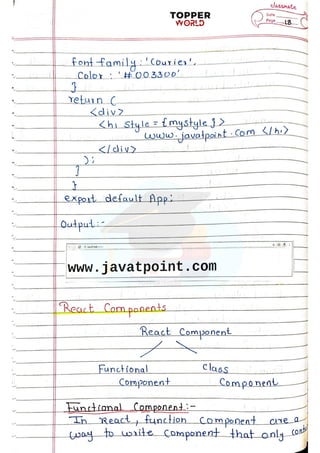 classmate
Date
Page 18
TOPPER
WORLD
font family : 'Courier',
Color : '#003300'
}
return (
<div>
<h1 Style = {mystyle}>
www.javatpoint.com </h1>
</div>
);
}
}
export default App;
Output :-
www.javatpoint.com
React Components
React Component
Functional Class
Component Component
Functional Component :-
In React, function Component are a
way to write Component that only